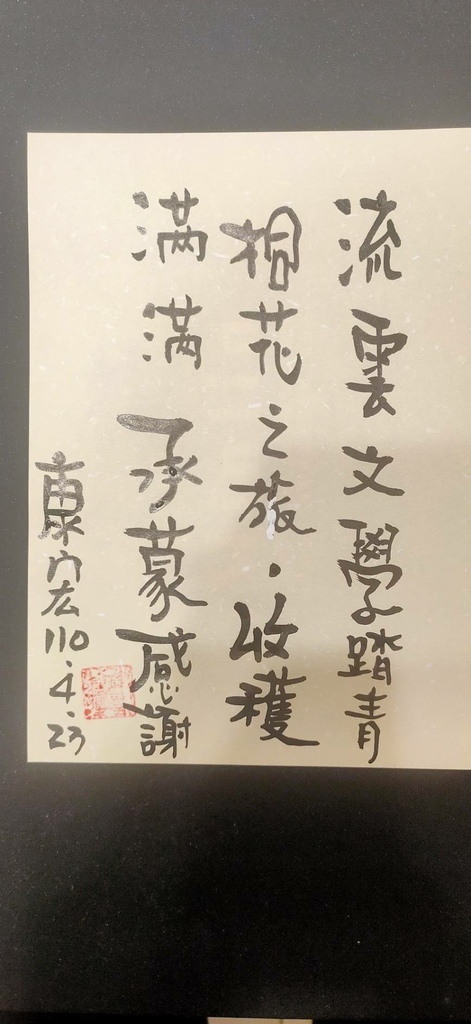 流雲文學踏青
桐花之旅．收穫
滿滿承蒙感謝
康宏110.4.23